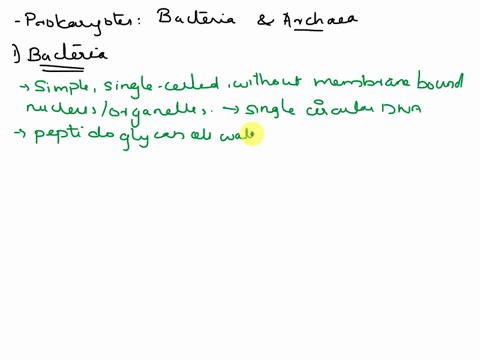 - Prokaryotes: Bacteria & Archaea
1) Bacteria
→ Simple, single-celled, without membrane bound
nucleus/organelles. → single circular DNA
→ peptidoglycan cell wall